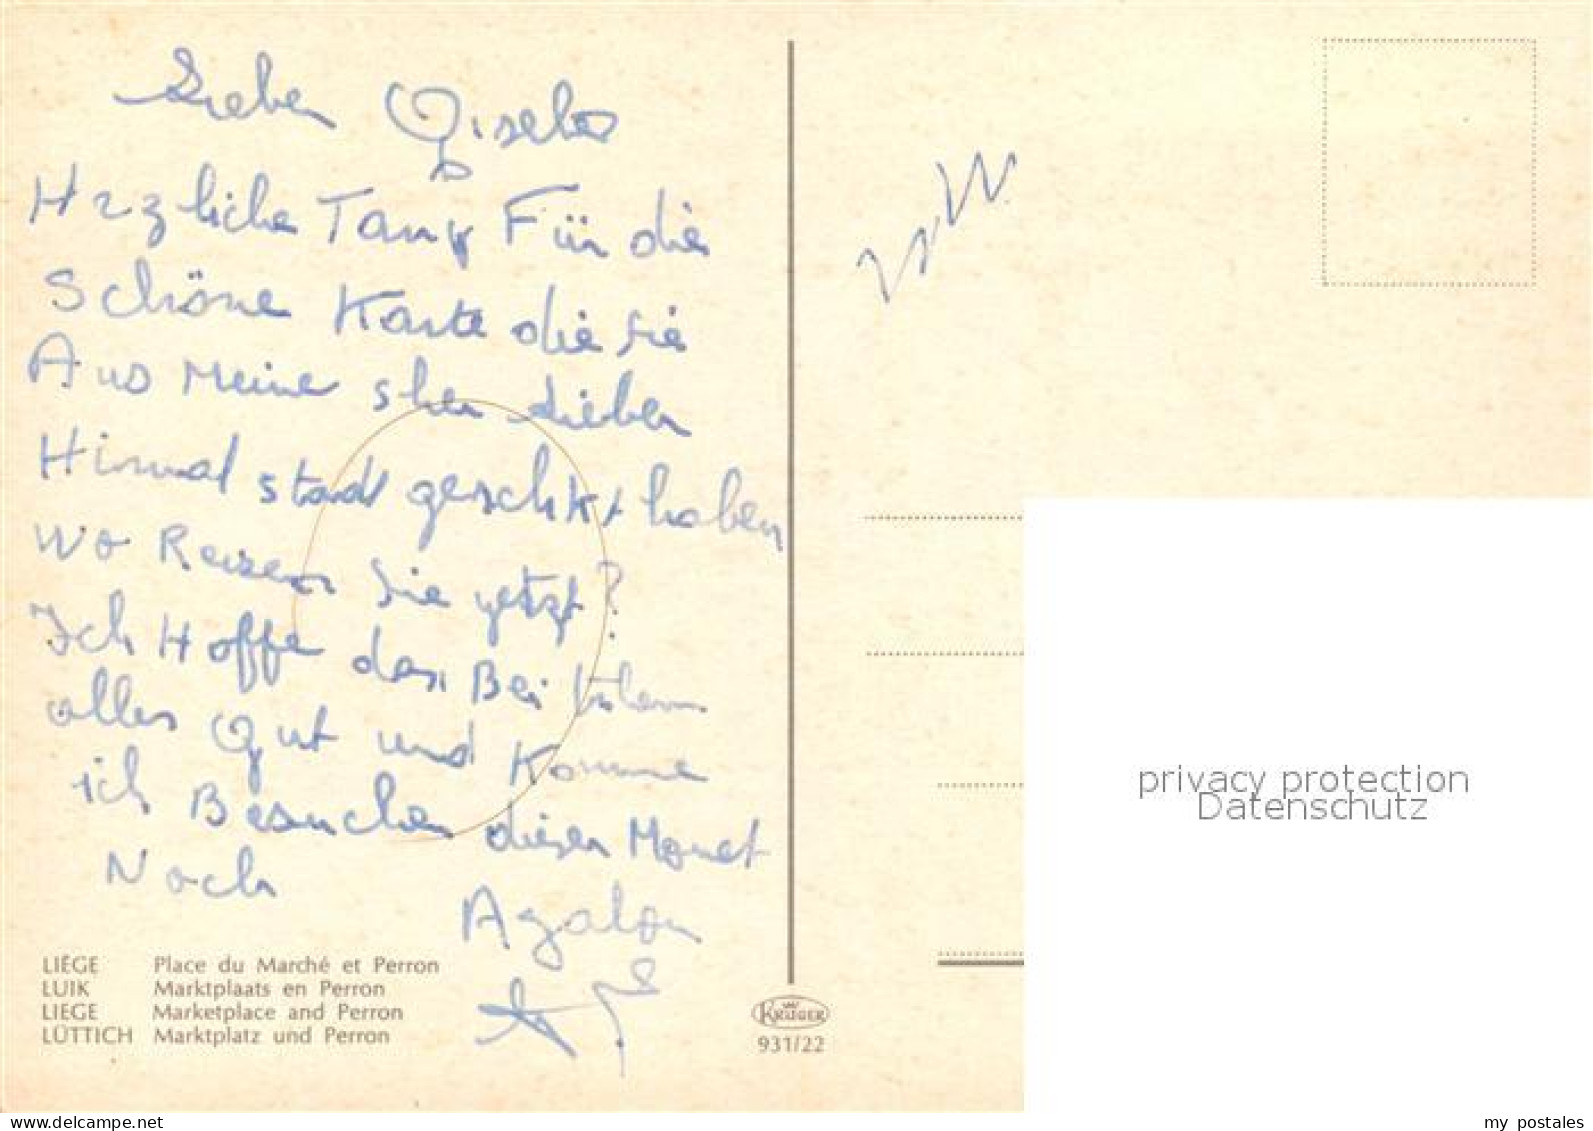 Lieber Gisela
Herzliche Tank Für die
Schöne Karte die sie
Aus Meine sher Lieben
Himmal stadt geschikt haben
Wo Reisen Sie yetzt?
Ich Hoffe das Bei
alles Gut und Komme
ich Besuchen diesen Monat
Noch
Agalou
LIÈGE Place du Marché et Perron
LUIK Marktplaats en Perron
LIEGE Marketplace and Perron
LÜTTICH Marktplatz und Perron
KRÜGER
931/22
privacy protection
Datenschutz
delcampe.net
my_postales